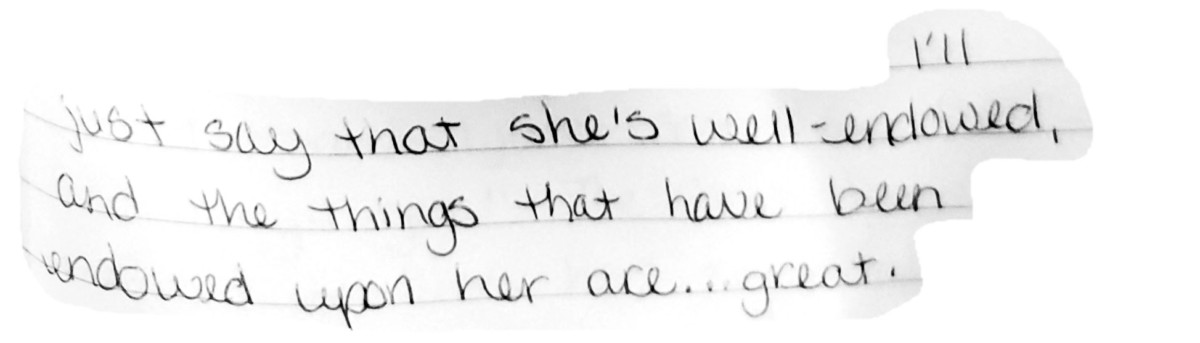 I'll
just say that she's well-endowed,
and the things that have been
endowed upon her are...great.